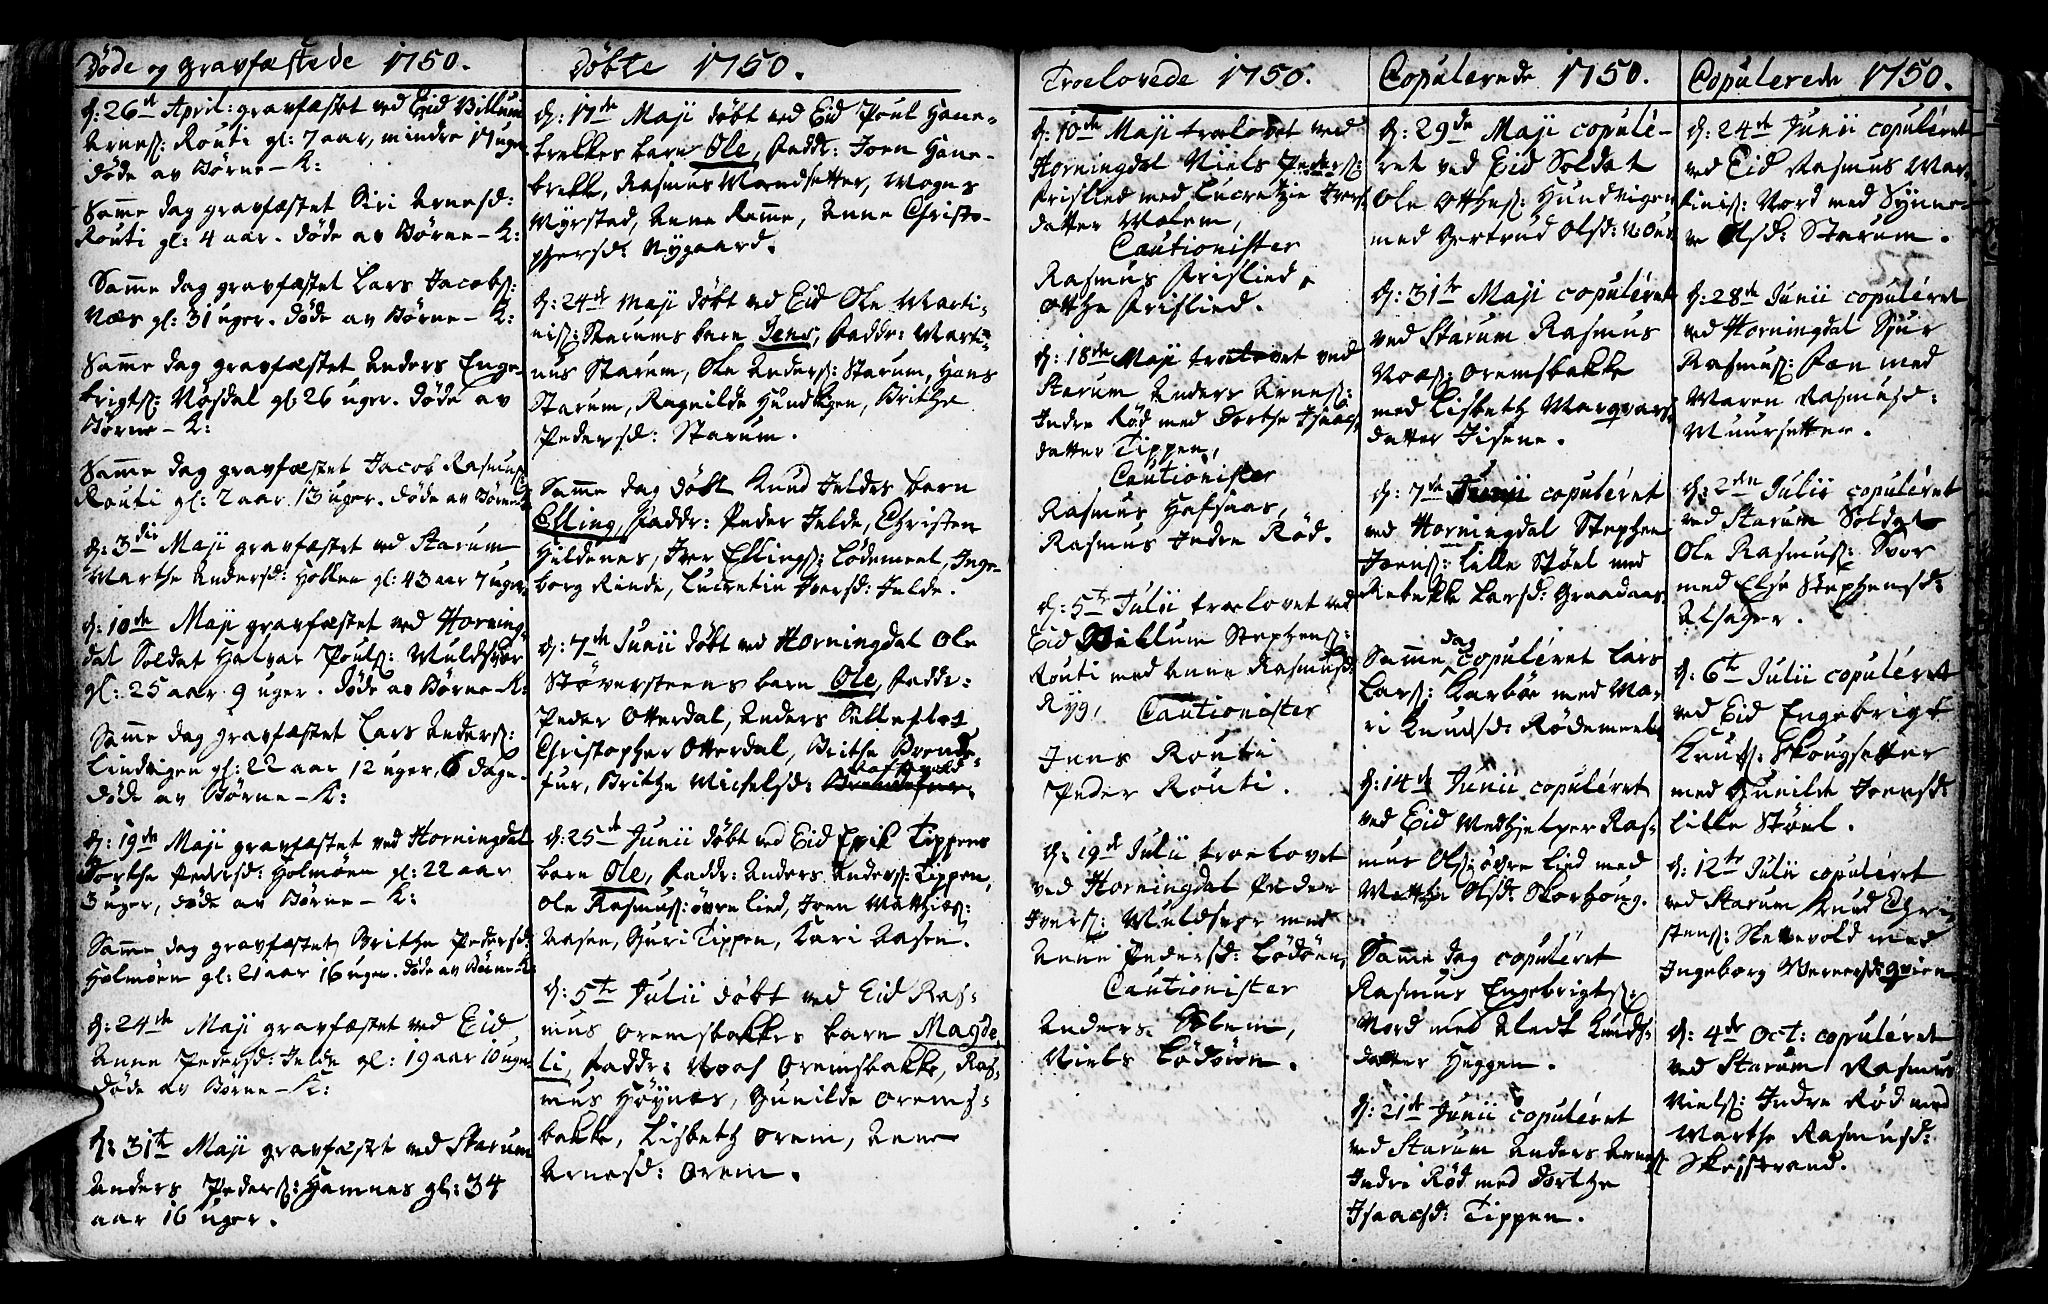 Døde og Gravfæstede 1750.
d: 26de April: gravfæstet ved Eid Villum
Arness: Routi gl: 7 aar, mindre 17 uger
døde av Børne-K:
Samme dag gravfæstet Siri Arnesd:
Routi gl: 4 aar. døde av Børne-K:
Samme dag gravfæstet Lars Jacobs:
Næs gl: 31 uger. døde av Børne-K:
Samme dag gravfæstet Anders Enge-
brigts: Nøsdal gl: 26 uger. døde av
Børne-K:
Samme dag gravfæstet Jacob Rasmuss:
Routi gl: 2 aar 13 uger. døde av Børne-K:
d: 3die Maji gravfæstet ved Starum
Marthe Andersd: Hollen gl: 43 aar 7 uger.
d: 10de Maji gravfæstet ved Horning-
dal Soldat Halvar Pouls: Muldsvor
gl: 25 aar 9 uger. døde av Børne-K:
Samme dag gravfæstet Lars Anders:
Lindvigen gl: 22 aar 12 uger, 6 dage.
døde av Børne-K:
d: 19de Maji gravfæstet ved Horningdal
Dorthe Pedersd: Holmøen gl: 22 aar
3 uger, døde av Børne-K:
Samme dag gravfæstet Brithe Pedersd:
Holmøen gl: 21 aar 16 uger. døde av Børne-K:
d: 24de Maji gravfæstet ved Eid
Anne Pedersd: Jelde gl: 19 aar 10 uger
døde av Børne-K:
d: 31te Maji gravfæstet ved Starum
Anders Peders: Hamnes gl: 34
aar 16 uger.
Døbte 1750.
d: 17de Maji døbt ved Eid Poul Hane-
brekkes barn Ole, Faddr: Joen Hane-
brekk, Rasmus Mandsetter, Mogns
Myrstad, Anne Remme, Anne Christo-
phersd: Nygaard.
d: 24de Maji døbt ved Eid Ole Marti-
nis: Starums barn Jens, Faddr: Marti-
nus Starum, Ole Anders: Starum, Hans
Starum, Ragnilde Hundvigen, Brithe
Pedersd: Starum.
Samme dag døbt Knud Jeldes barn
Elling, Faddr: Peder Jelde, Christen
Hildenes, Iver Ellings: Lødemeel, Inge-
borg Rinde, Lucretia Iversd: Jelde.
d: 7de Junii døbt ved Horningdal Ole
Støversteens barn Ole, Faddr:
Peder Otterdal, Anders Silleflot
Christopher Otterdal, Brithe Brende-
fur, Brithe Michelsd:
d: 25de Junii døbt ved Eid Erik Tippens
barn Ole, Faddr: Anders Anders: Tippen,
Ole Rasmus: øvre Lied, Iver Matthias:
Aasen, Guri Tippen, Kari Aasen.
d: 5te Julii døbt ved Eid Ras-
mus Oremsbakkes barn Magde-
li, Faddr: Noas Oremsbakke, Ras-
mus Høynes, Gunilde Orems-
bakke, Lisbeth Orem, Anne
Arnesd: Orem.
Troelovede 1750.
d: 10de Maji troelovet ved
Horningdal Niels Peders:
Frislied med Lucretzie Ivers
datter Mælem,
Cautionister
Rasmus Frislied,
Otthe Frislied.
d: 18de Maji troelovet ved
Starum Anders Arness:
Indre Rød med Dorthe Isaacs
datter Tippen,
Cautionister
Rasmus Hafsaas,
Rasmus Indre Rød.
d: 5te Julii troelovet ved
Eid Villum Stephens:
Routi med Anne Rasmusd:
Ryg, Cautionister
Jens Routi
Peder Routi.
d: 19de Julii troelovet
ved Horningdal Peder
Ivers: Muldsvor med
Anne Pedersd: Lødøen,
Cautionister
Anders Solem,
Niels Lødøen.
Copulerede 1750.
d: 29de Maji copulé-
ret ved Eid Soldat
Ole Otthes: Hundvigen
med Gertrud Olsd:
d: 31te Maji copuléret
ved Starum Rasmus
Noæs: Oremsbakke
med Lisbeth Marqvars
datter Jisene.
d: 7de Junii copuléret
ved Horningdal Stephen
Joens: Lille Støel med
Rebekke Larsd: Graadaas.
Samme dag copuléret Lars
Lars: Karbøe med Ma-
ri Knudsd: Rødemeel.
d: 14de Junii copuléret
ved Eid Medhjelper Ras-
mus Ols: øvre Lied med
Matthe Olsd: Skorhoug.
Samme dag copuléret
Rasmus Engebrigts:
Nord med Aledt Knuds-
datter Heggen.
d: 21de Junii copuléret
ved Starum Anders Arness:
Indre Rød med Dorthe
Isaacsd: Tippen.
Copulerede 1750.
d: 24de Junii copuléret
ved Eid Rasmus Mar-
tinis: Nord med Synne-
ve Olsd: Starum.
d: 28de Junii copuléret
ved Horningdal Siur
Rasmus: Fæn med
Maren Rasmusd:
Muursetter.
d: 2den Julii copuléret
ved Starum Soldat
Ole Rasmus: Svor
med Else Stephensd:
Alsager.
d: 6te Julii copuléret
ved Eid Engebrigt
Knuts: Skougsetter
med Gunilde Joensd:
Lille Støel.
d: 12te Julii copuléret
ved Starum Knud Chri-
stens: Skevold med
Ingeborg
d: 4de Oct: copuléret
ved Starum Rasmus
Niels: Indre Rød med
Marthe Rasmusd:
Skeistrand.